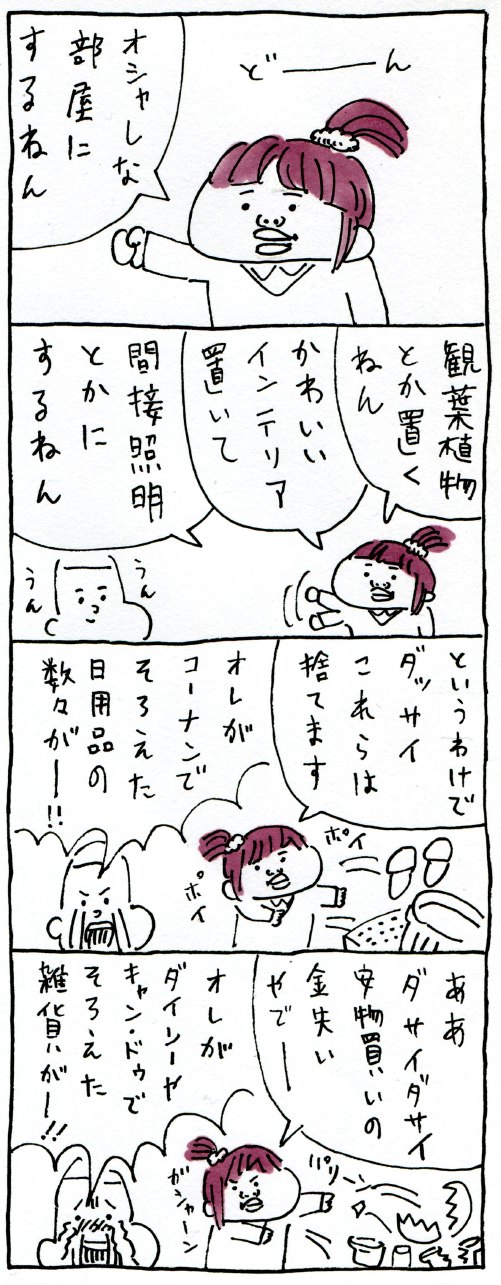 どーん
オシャしな
部屋に
するねん
観葉植物
とか置く
ねん
かわいい
インテリア
置いて
間接照明
とかに
するねん
うん
うん
というわけで
ダッサイ
これらは
捨てます
ポイ
ポイ
オレが
コーナンで
そろえた
日用品の
数々がー!!
ああ
ダサイダサイ
安物買いの
金失い
やでー
パリーン
ガシャーン
オレが
ダイソーや
キャン・ドゥで
そろえた
雑貨がー!!